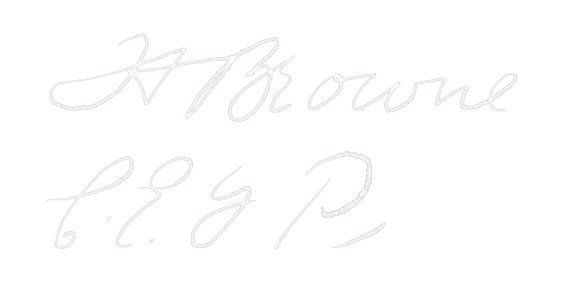 H Browne
C. E. G P.